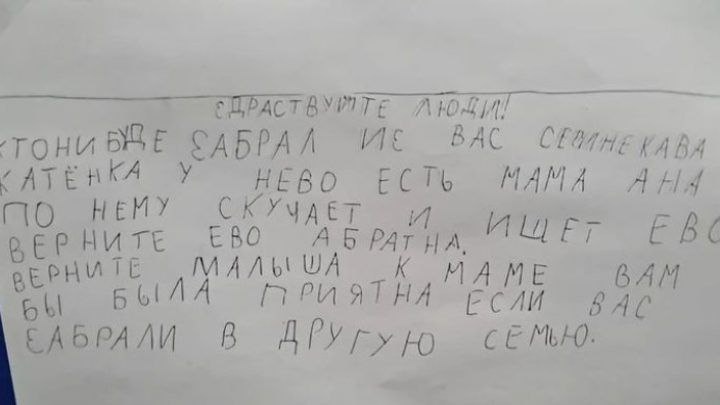 ЗДРАСТВУЙТЕ ЛЮДИ!
КТОНИБУДЕ ЗАБРАЛ ИЗ ВАС СЕМНЕКАВА
КАТЁНКА У НЕВО ЕСТЬ МАМА АНА
ПО НЕМУ СКУЧАЕТ И ИЩЕТ ЕВО
ВЕРНИТЕ ЕВО АБРАТНА.
ВЕРНИТЕ МАЛЫША К МАМЕ ВАМ
БЫ БЫЛА ПРИЯТНА ЕСЛИ ВАС
ЗАБРАЛИ В ДРУГУЮ СЕМЬЮ.